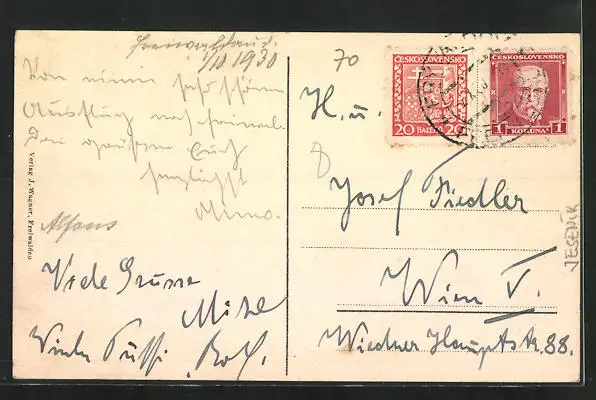 Freiwaldau
1/10 1930
Von einem sehr schönen
Ausflug nach Freiwald.
Euch
herzlichst
Alfons
Viele Grüsse
Mize
Viele Pussi
Verlag J. Wagner, Freiwaldau
70
ČESKOSLOVENSKO
20 HALÉŘŮ 20
ČESKOSLOVENSKO
1 KORUNA 1
H. u.
Josef Fiedler
Wien V.
Wiedner Hauptstr. 88.
JESENÍK